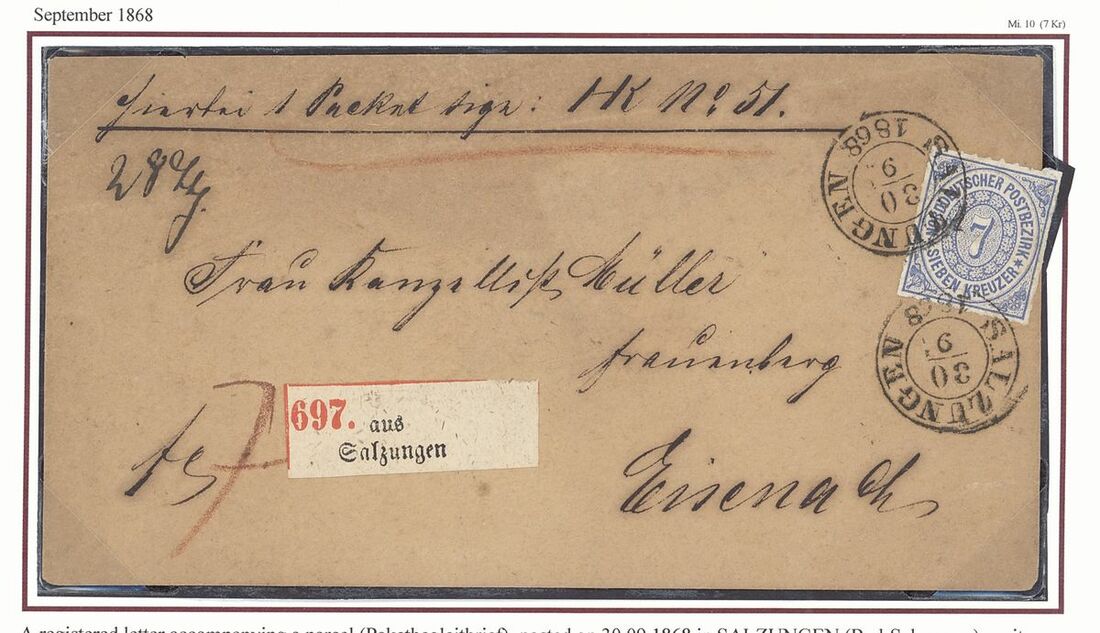 September 1868
Mi. 10 (7 Kr)
Hierbei 1 Packet sign: HK No. 51.
SALZUNGEN
30/9
1868
NORDDEUTSCHER POSTBEZIRK
7
SIEBEN KREUZER
Frau Kanzellist Müller
Frauenberg
SALZUNGEN
30/9
1868
697. aus
Salzungen
Eisenach
A registered letter accompanying a parcel (Paketbegleitbrief), posted on 30.09.1868 in SALZUNGEN